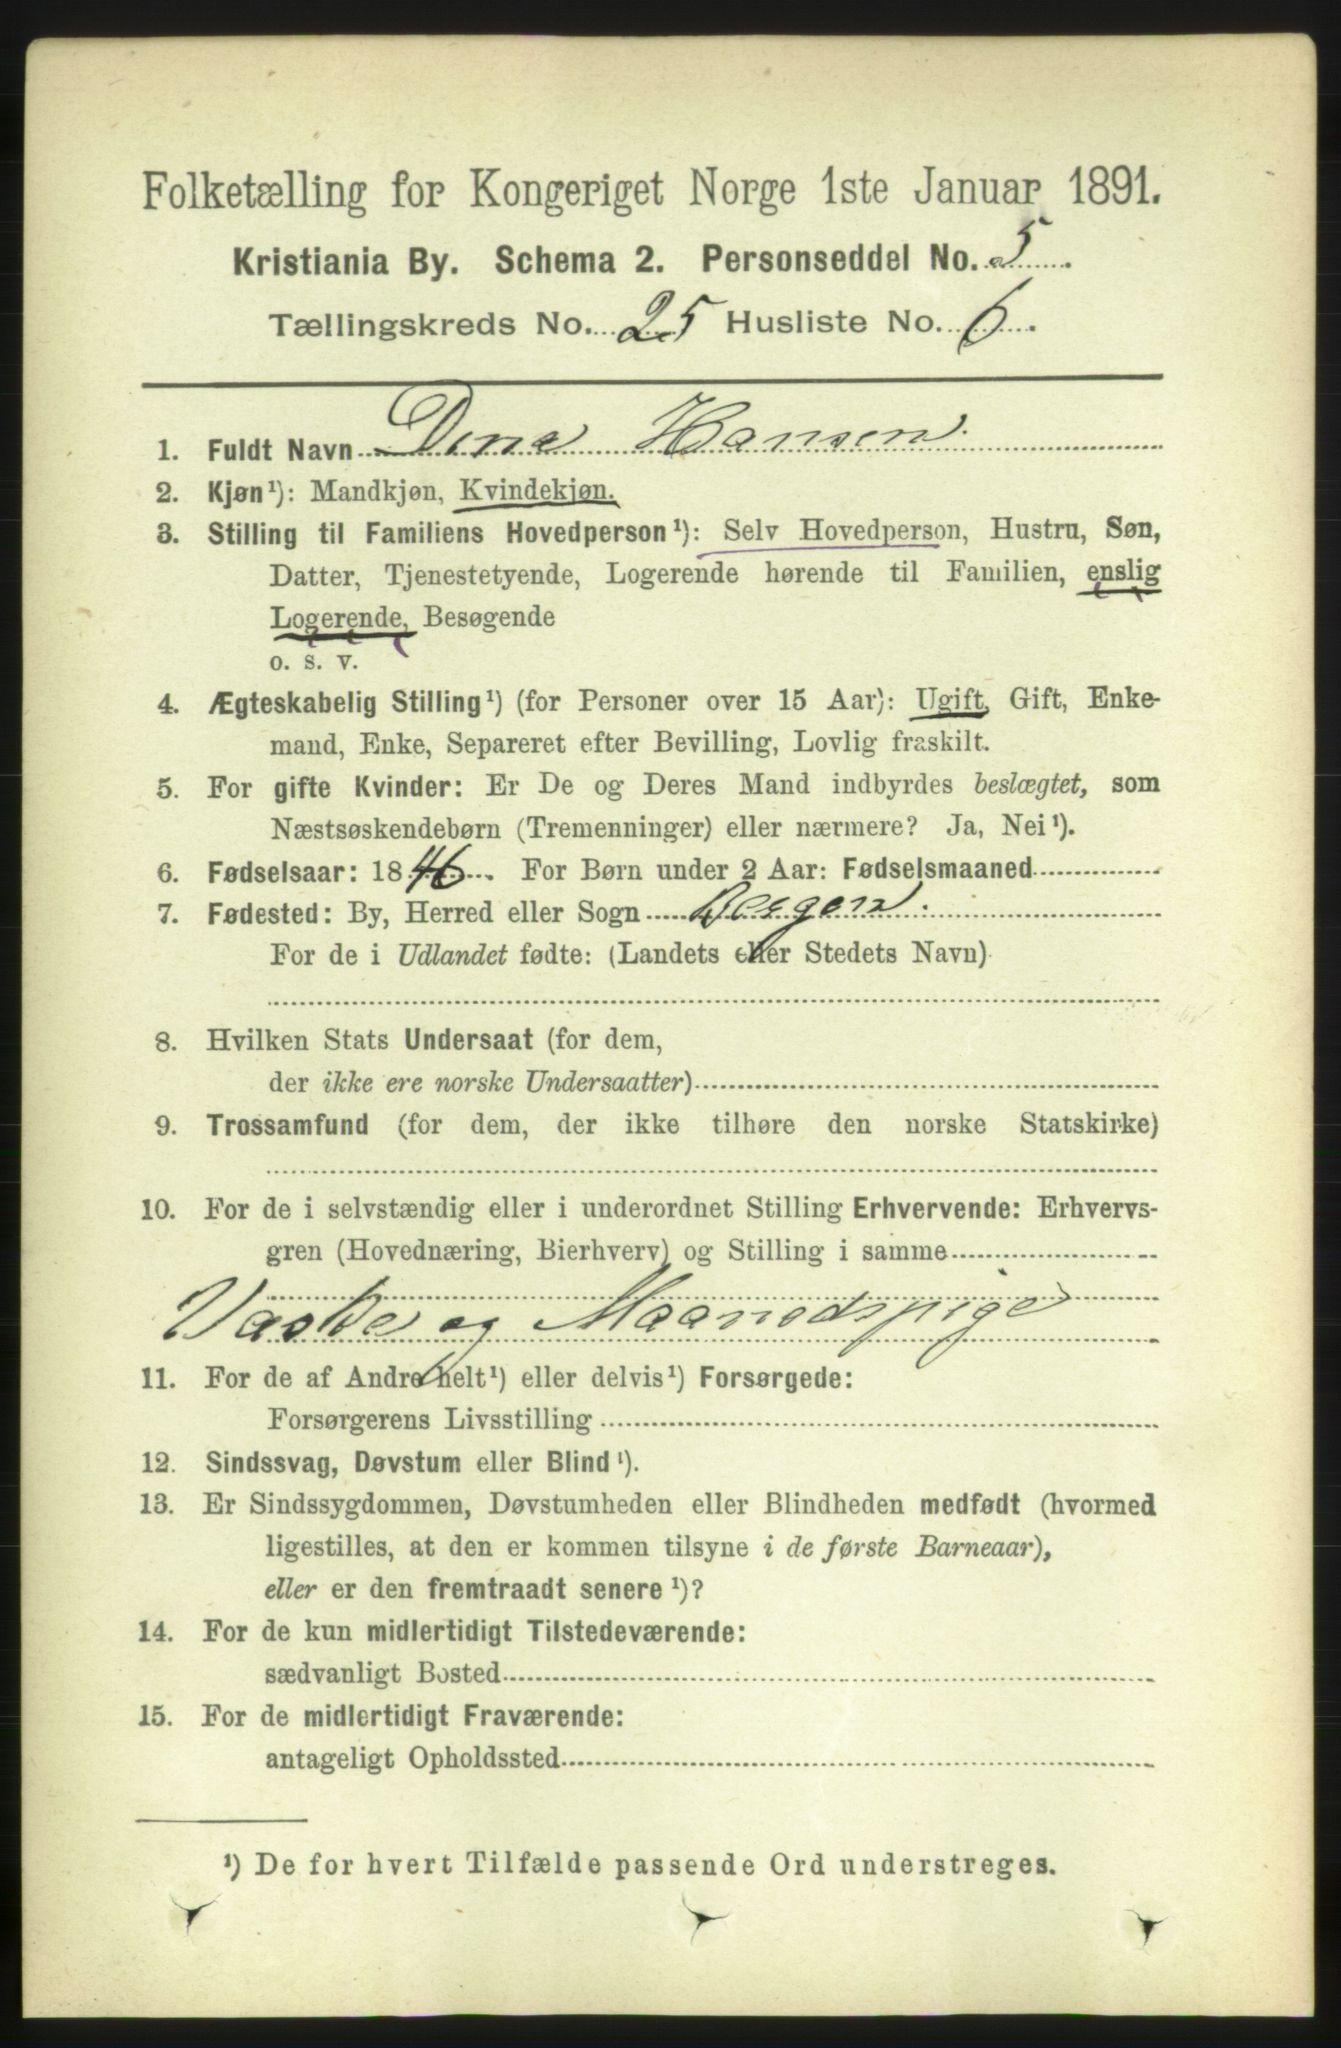 Folketælling for Kongeriget Norge 1ste Januar 1891.
Kristiania By. Schema 2. Personseddel No. 5
Tællingskreds No. 25 Husliste No. 6
1. Fuldt Navn Dina Hansen
2. Kjøn¹): Mandkjøn, Kvindekjøn.
3. Stilling til Familiens Hovedperson¹): Selv Hovedperson, Hustru, Søn,
Datter, Tjenestetyende, Logerende hørende til Familien, enslig
Logerende, Besøgende
o. s. v.
4. Ægteskabelig Stilling¹) (for Personer over 15 Aar): Ugift, Gift, Enke-
mand, Enke, Separeret efter Bevilling, Lovlig fraskilt.
5. For gifte Kvinder: Er De og Deres Mand indbyrdes beslægtet, som
Næstsøskendebørn (Tremenninger) eller nærmere? Ja, Nei¹).
6. Fødselsaar: 1846. For Børn under 2 Aar: Fødselsmaaned
7. Fødested: By, Herred eller Sogn Bergen.
For de i Udlandet fødte: (Landets eller Stedets Navn)
8. Hvilken Stats Undersaat (for dem,
der ikke ere norske Undersaatter)
9. Trossamfund (for dem, der ikke tilhøre den norske Statskirke)
10. For de i selvstændig eller i underordnet Stilling Erhvervende: Erhvervs-
gren (Hovednæring, Bierhverv) og Stilling i samme
Vaske og Maanedspige
11. For de af Andre helt¹) eller delvis¹) Forsørgede:
Forsørgerens Livsstilling
12. Sindssvag, Døvstum eller Blind¹).
13. Er Sindssygdommen, Døvstumheden eller Blindheden medfødt (hvormed
ligestilles, at den er kommen tilsyne i de første Barneaar),
eller er den fremtraadt senere¹)?
14. For de kun midlertidigt Tilstedeværende:
sædvanligt Bosted
15. For de midlertidigt Fraværende:
antageligt Opholdssted
¹) De for hvert Tilfælde passende Ord understreges.